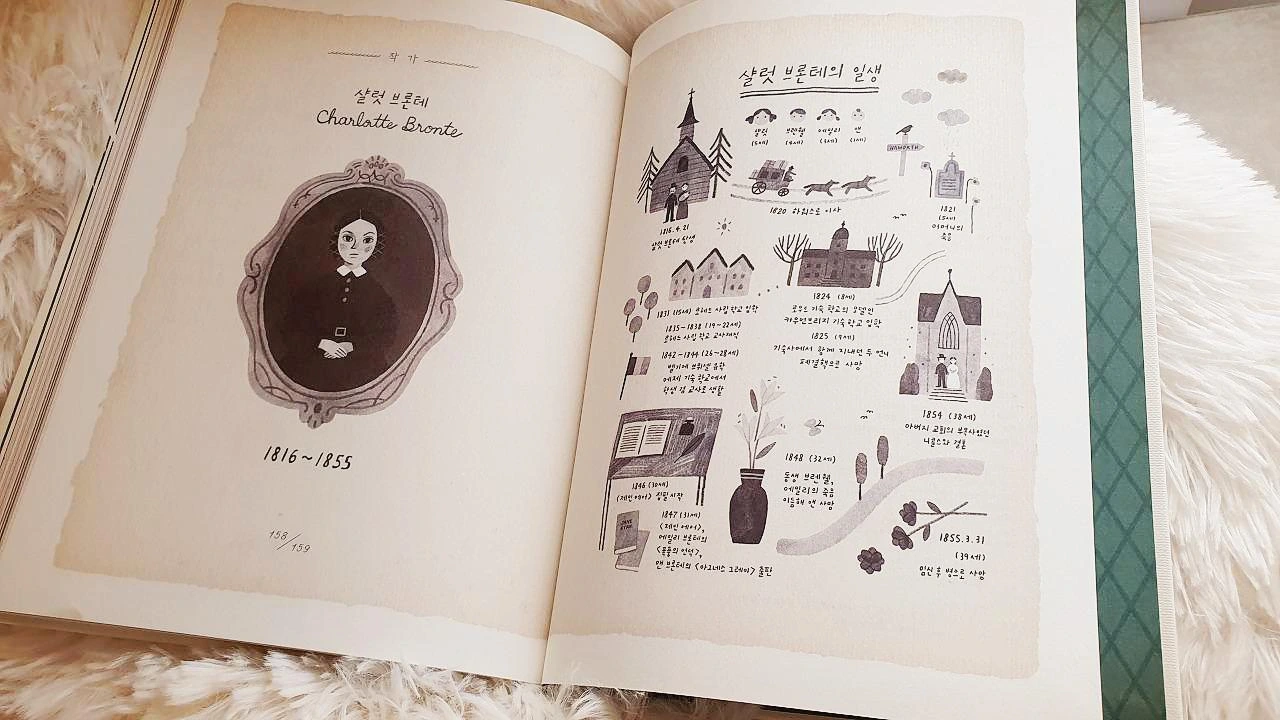 작가
샬럿 브론테
Charlotte Bronte
1816~1855
158/159
샬럿 브론테의 일생
샬럿 브랜웰 에밀리 앤
(5세) (4세) (3세) (1세)
HAWORTH
1816.4.21
샬럿 브론테 탄생
1820 하워스로 이사
1821
(5세)
어머니의
죽음
1824 (8세)
로우드 기숙 학교의 모델인
카우언브리지 기숙 학교 입학
1825 (9세)
기숙사에서 함께 지내던 두 언니
폐결핵으로 사망
1831 (15세) 로헤드 사립 학교 입학
1835~1838 (19~22세)
로헤드 사립 학교 교사재직
1842~1844 (26~28세)
벨기에 브뤼셀 유학
에제 기숙 학교에서
학생 겸 교사로 생활
1854 (38세)
아버지 교회의 부목사였던
니콜스와 결혼
1846 (30세)
<제인 에어> 집필 시작
1847 (31세)
<제인 에어>,
에밀리 브론테의
<폭풍의 언덕>,
앤 브론테의 <아그네스 그레이> 출판
JANE
EYRE
1848 (32세)
동생 브랜웰,
에밀리의 죽음
이듬해 앤 사망
1855.3.31
(39세)
임신 후 병으로 사망